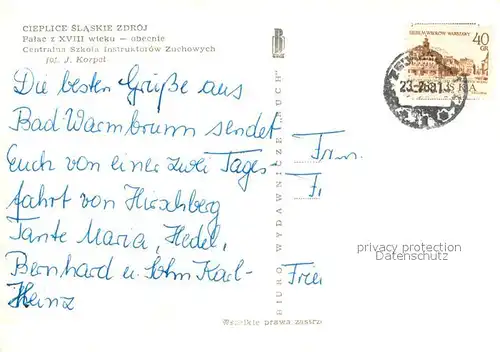 CIEPLICE ŚLĄSKIE ZDRÓJ
Pałac z XVIII wieku — obecnie
Centralna Szkoła Instruktorów Zuchowych
fot. J. Korpal
Die besten Grüße aus
Bad Warmbrunn sendet
Euch von einer zwei Tages-
fahrt von Hirschberg
Tante Maria, Hedel,
Bernhard u. Sohn Karl-
Heinz
BIURO WYDAWNICZE „RUCH”
Wszelkie prawa zastrz
SIEDEM WIEKÓW WARSZAWY
40
GR
privacy protection
Frei